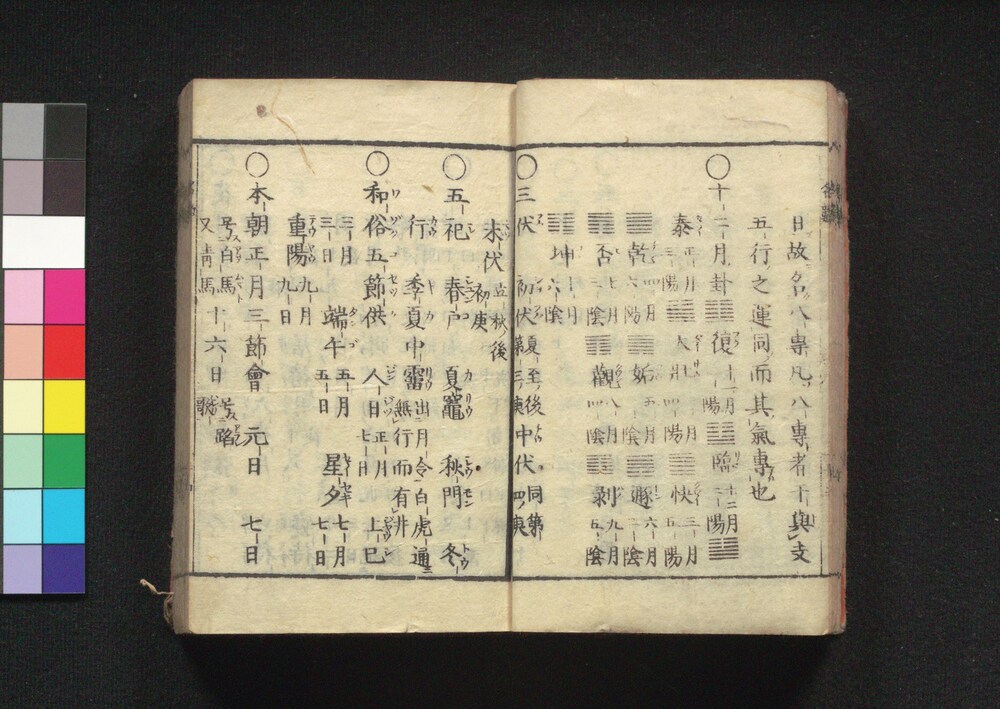 日故名八專凡八專者干與支
五行之運同而其氣專也
○十二月卦䷗復十一月一陽䷒臨十二月二陽䷊
泰正月三陽䷡大壯二月四陽䷪快三月五陽
䷀乾四月六陽䷫姤五月一陰䷠遯六月二陰
䷋否七月三陰䷓觀八月四陰䷖剝九月五陰
䷁坤十月六陰
○三伏 初伏夏至後第三ノ庚中伏同第四ノ庚
末伏立秋後初庚
○五祀 春戸 夏竈 秋門 冬
行 季夏中霤出月令白虎通ニ無行而有井
○和俗五節供 人日正月七日 上巳
三月三日 端午五月五日 星夕七月七日
重陽九月九日
○本朝正月三節會 元日 七日
号白馬又青馬 十六日号踏歌